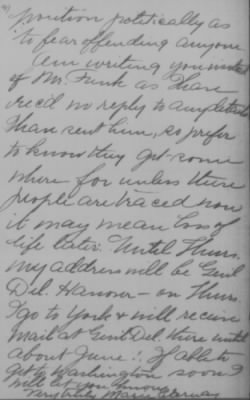 position politically as
to fear offending anyone
Am writing you instead
of Mr. Funk as I have
rec'd no reply to any letters
I have sent him, so prefer
to know they get some
where for unless these
people are traced now
it may mean loss of
life later. Until Thurs.
my address will be Genl
Del. Hanover - on Thurs.
I go to York & will receive
mail at Genl Del. there until
about June 1. If able to
get to Washington soon I
will let you know
Very truly, Marie